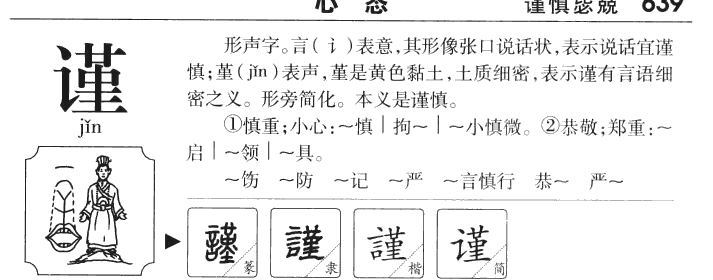 谨慎瑟兢 639
谨
jǐn
形声字。言(讠)表意,其形像张口说话状,表示说话宜谨
慎;堇(jǐn)表声,堇是黄色黏土,土质细密,表示谨有言语细
密之义。形旁简化。本义是谨慎。
①慎重;小心:~慎|拘~|~小慎微。②恭敬;郑重:~
启|~领|~具。
~饬 ~防 ~记 ~严 ~言慎行 恭~ 严~
謹 篆 謹 隶 謹 楷 谨 简